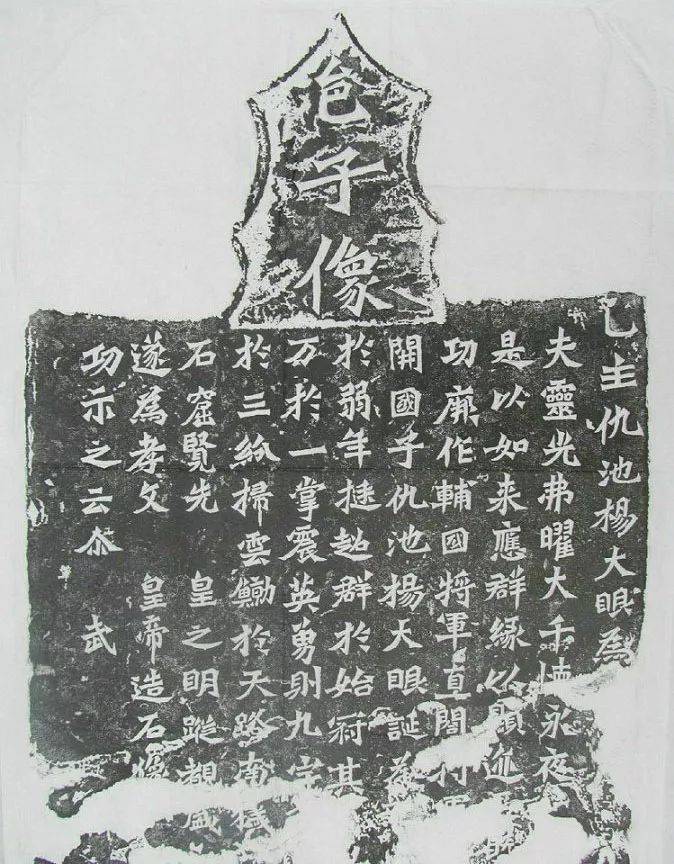 邑子像
邑主仇池楊大眼為
夫靈光弗曜大千懷永夜
是以如来應群緣以顯迹
功厥作輔國将軍直閤将
開國子仇池楊大眼誕承
於弱年挺超群於始冠其
万於一掌震英勇則九宇
於三紛掃雲鯨於天路南穢
石窟覽先 皇之明蹤覩盛
遂為孝文 皇帝造石像
功示之云尒 武